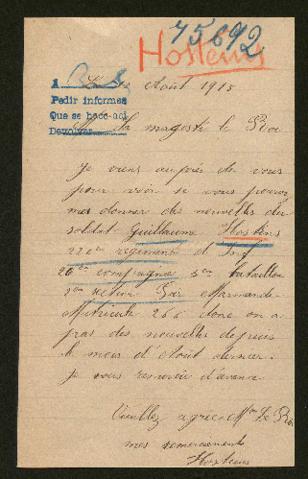 75692
Hosteins
A
Pedir informes
Que se hace-aci
Devolver
Août 1915
sa magesté le Roi
Je viens auprès de vous
pour voir si vous pouvez
mes donner des nouvelles du
soldat Guillaume Hosteins
220em regiment d Inf
20em compagnie 5em bataillon
section Par Marmande
Matricule 266 donc on a
pas des nouvelles depuis
le mois d'Août dernier.
Je vous remercie d'avance
Veuillez agréer Mr Le Roi
mes remerciements
Hosteins